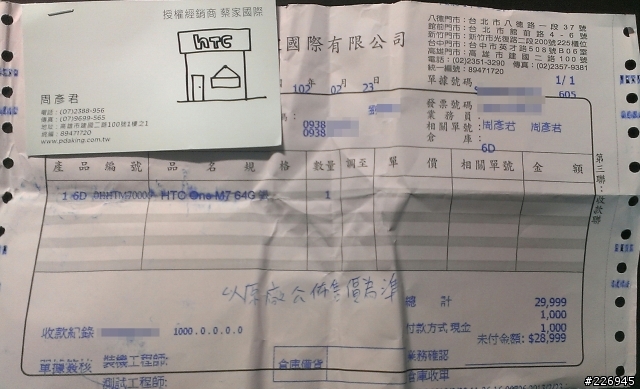 授權經銷商 蔡家國際
hTC
周彥君
電話：(07)2388-956
傳真：(07)9699-565
地址：高雄市建國二路100號1樓之1
統編：89471720
www.pdaking.com.tw
國際有限公司
八德門市：台北市八德路一段37號
館前門市：台北市館前路4-6號
新竹門市：新竹市光復路二段200號225櫃位
台中門市：台中市英才路508號B06室
高雄門市：高雄市建國二路100號
電話：(02)2351-3290 傳真：(02)2357-9381
統一編號：89471720
102 年 02 月 23
單據號碼 1/1
605
發票號碼
業務員 周彥君 周彥君
相關單號：
倉庫：
6D
0938
0938
產品編號 品名規格 數量 調至 單價 相關單號 金額
1 6D HTC One M7 64G 1
第三聯：收款聯
以原廠公佈售價為準
總計 29,999
1,000
付款方式 現金 1,000
未付金額：$28,999
收款紀錄 1000.0.0.0.0
單據簽核 裝機工程師:
測試工程師:
倉庫備貨
業務確認
倉庫收單
#226945